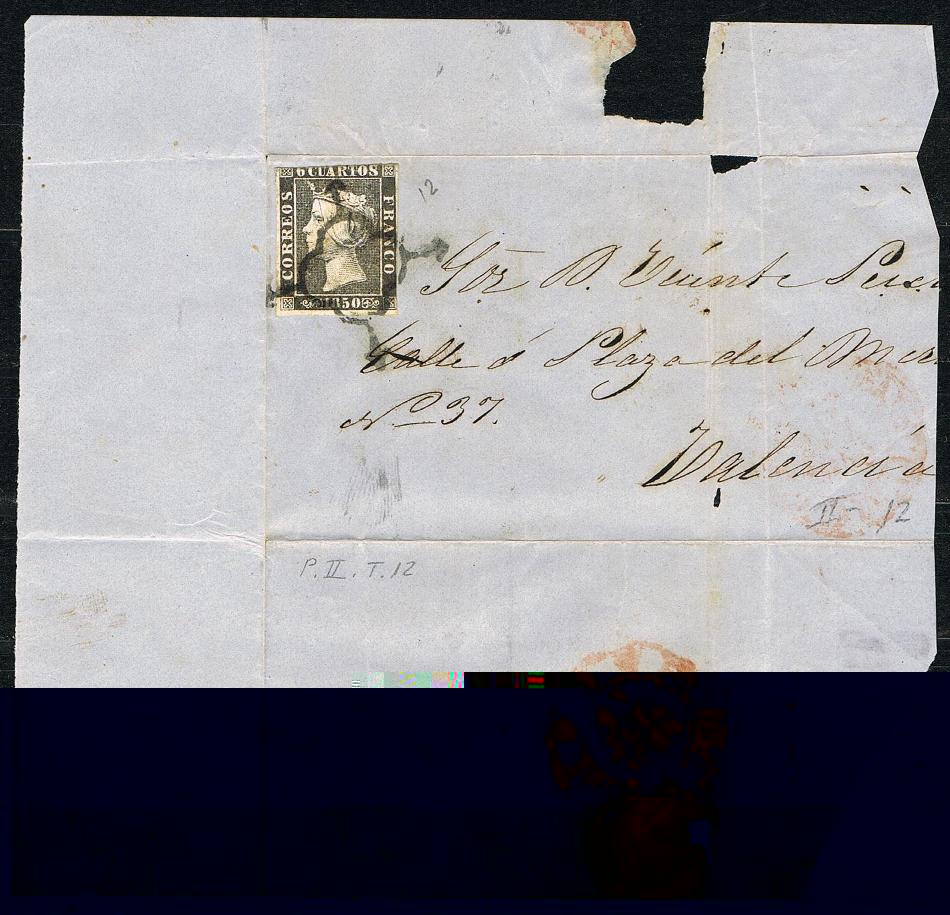 6 CUARTOS
CORREOS
FRANCO
1850
12
Sor D. Vicente
Calle ó Plaza del Mer
No 37.
Valencia
II - 12
P. II. T. 12